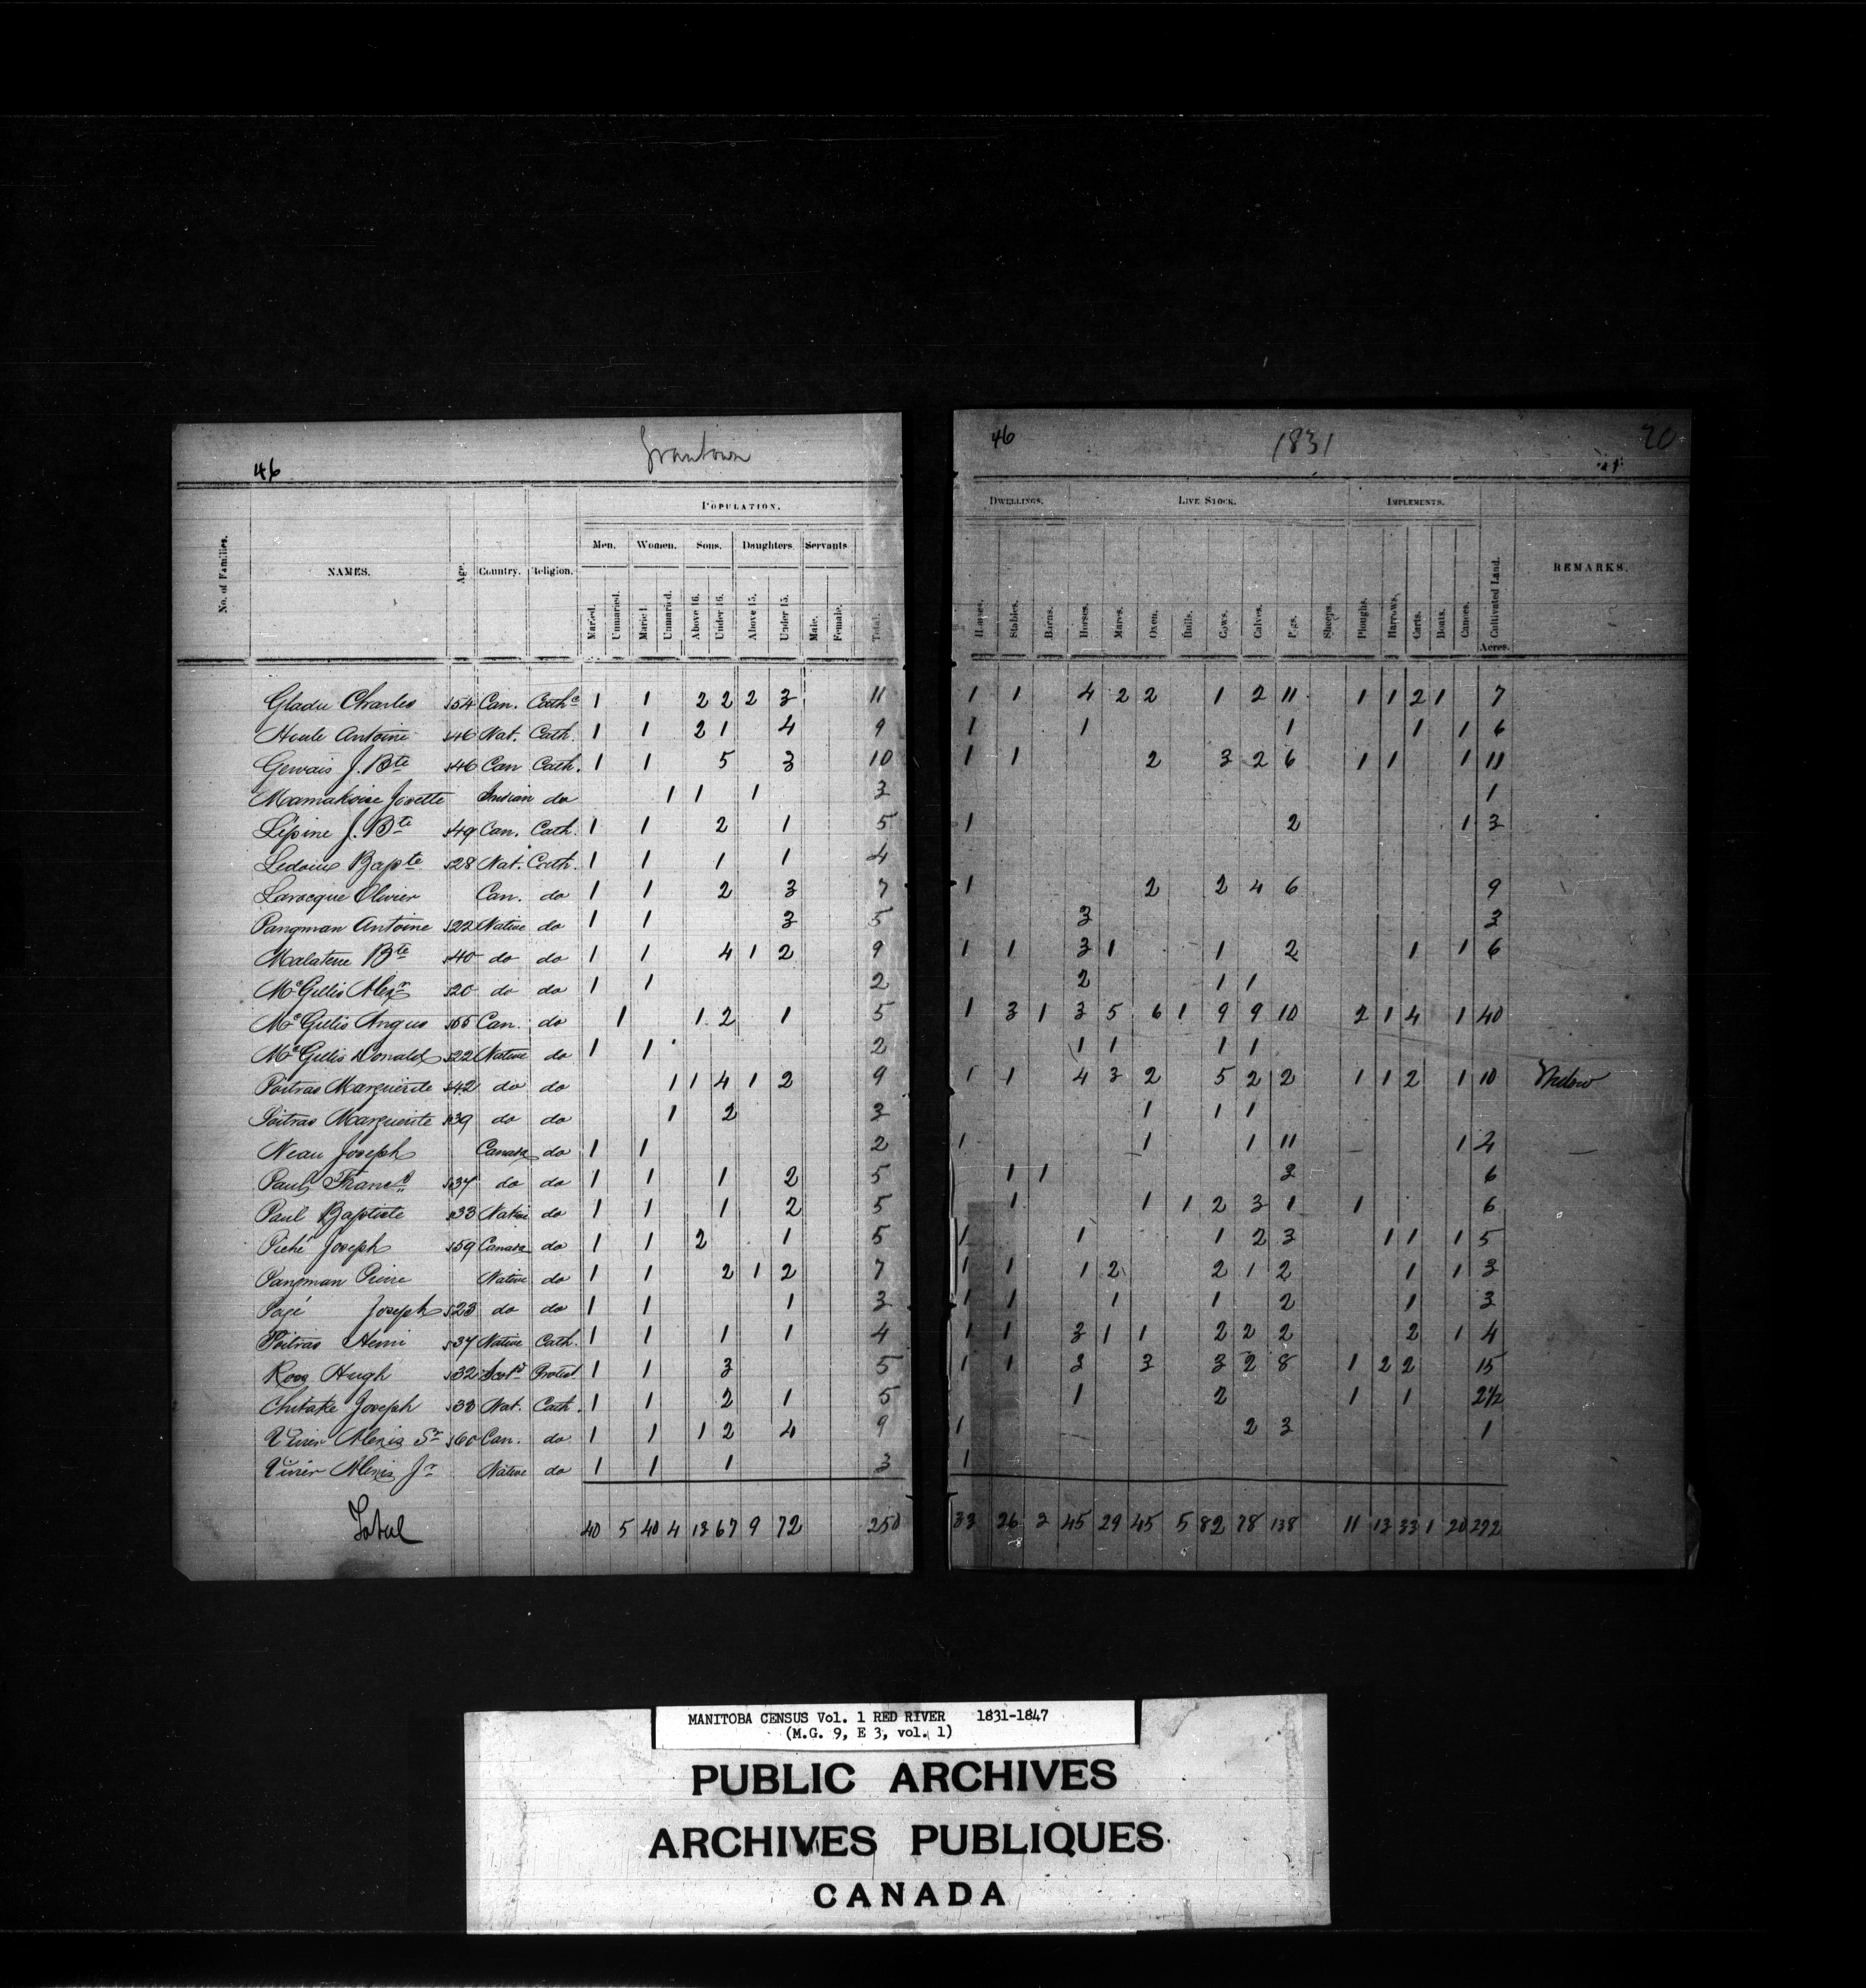 Grantown
46
POPULATION.
Men. Women. Sons. Daughters. Servants
No. of Families. NAMES. Age. Country. Religion. Married. Unmarried. Married. Unmarried. Above 16. Under 16. Above 15. Under 15. Male. Female. Total.
Gladu Charles 54 Can. Cathc 1 1 2 2 2 3 11
Houle Antoine 46 Nat. Cath. 1 1 2 1 4 9
Gervais J. Bte 46 Can Cath. 1 1 5 3 10
Mamakoise Josette Indian do 1 1 1 3
Lépine J. Bte 49 Can. Cath. 1 1 2 1 5
Ledoux Bapte 28 Nat. Cath. 1 1 1 1 4
Larocque Olivier Can. do 1 1 2 3 7
Pangman Antoine 22 Native do 1 1 3 5
Malaterre Bte 40 do do 1 1 4 1 2 9
McGillis Alexr 20 do do 1 1 2
McGillis Angus 55 Can. do 1 1 2 1 5
McGillis Donald 22 Native do 1 1 2
Poitras Marguerite 42 do do 1 1 4 1 2 9
Poitras Marguerite 39 do do 1 2 3
Neau Joseph Canada do 1 1 2
Paul Francs 37 do do 1 1 1 2 5
Paul Baptiste 33 Native do 1 1 1 2 5
Piché Joseph 59 Canada do 1 1 2 1 5
Pangman Pierre Native do 1 1 2 1 2 7
Pagé Joseph 23 do do 1 1 1 3
Poitras Henri 37 Native Cath. 1 1 1 1 4
Ross Hugh 32 Scotd Protest 1 1 3 5
Chitake Joseph 33 Nat. Cath. 1 1 2 1 5
Vivier Alexis Sr 60 Can. do 1 1 1 2 4 9
Vivier Alexis Jr Native do 1 1 1 3
Total 40 5 40 4 13 67 9 72 250
46 1831 20
DWELLINGS. LIVE STOCK. IMPLEMENTS.
Houses. Stables. Barns. Horses. Mares. Oxen. Bulls. Cows. Calves. Pigs. Sheeps. Ploughs. Harrows. Carts. Boats. Canoes. Cultivated Land. Acres. REMARKS.
1 1 4 2 2 1 2 11 1 1 2 1 7
1 1 1 1 1 6
1 1 2 3 2 6 1 1 1 11
1
1 2 1 3
1 2 2 4 6 9
3 3
1 1 3 1 1 2 1 1 6
2 1 1
1 3 1 3 5 6 1 9 9 10 2 1 4 1 40
1 1 1 1
1 1 4 3 2 5 2 2 1 1 2 1 10 Widow
1 1 1
1 1 1 11 1 4
1 1 3 6
1 1 1 2 3 1 1 6
1 1 1 2 3 1 1 1 5
1 1 1 2 2 1 2 1 1 3
1 1 1 1 2 1 3
1 1 3 1 1 2 2 2 2 1 4
1 1 3 3 3 2 8 1 2 2 15
1 2 1 1 2½
1 2 3 1
1
33 26 3 45 29 45 5 82 78 138 11 13 33 1 20 292
MANITOBA CENSUS Vol. 1 RED RIVER 1831-1847
(M.G. 9, E 3, vol. 1)
PUBLIC ARCHIVES
ARCHIVES PUBLIQUES
CANADA